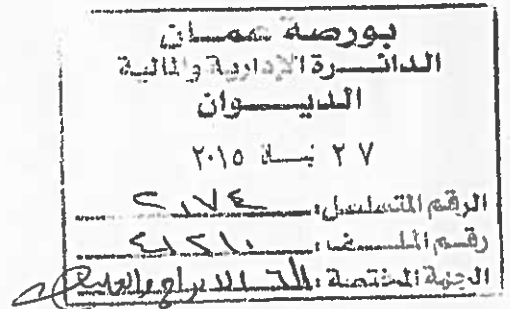 بورصة عمان
الدائرة الإدارية والمالية
الديوان
٢٧ نيسان ٢٠١٥
الرقم المتسلسل: ٢١٧٤
رقم الملف: ٤١٢١٠
الجهة المختصة: الادراج